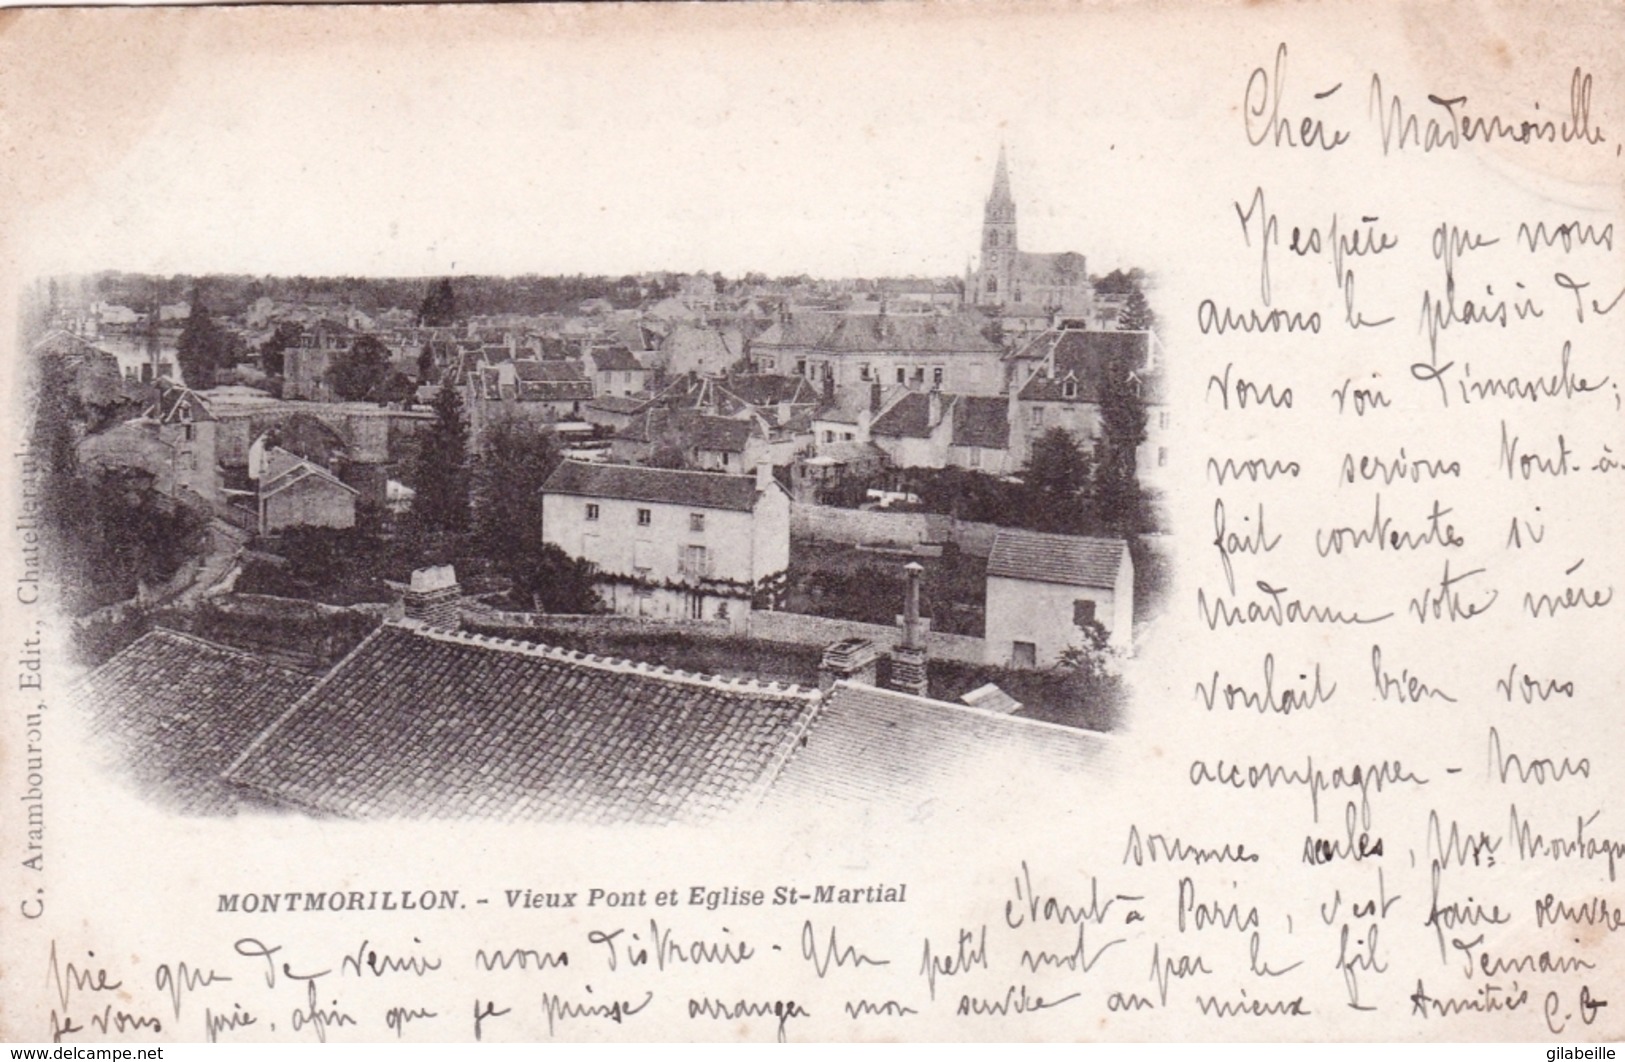 Chère Mademoiselle,
J'espère que nous
aurons le plaisir de
vous voir Dimanche ;
nous serions tout-à-
fait contentes si
madame votre mère
voulait bien vous
accompagner - Nous
sommes seules, Mr Montagu
étant à Paris, c'est faire œuvre
pie que de venir nous distraire - Un petit mot par le fil demain
je vous prie, afin que je puisse arranger mon service au mieux - Amitiés C. G
MONTMORILLON. - Vieux Pont et Eglise St-Martial
C. Arambourou, Edit., Chatellerault
www.delcampe.net
gilabeille